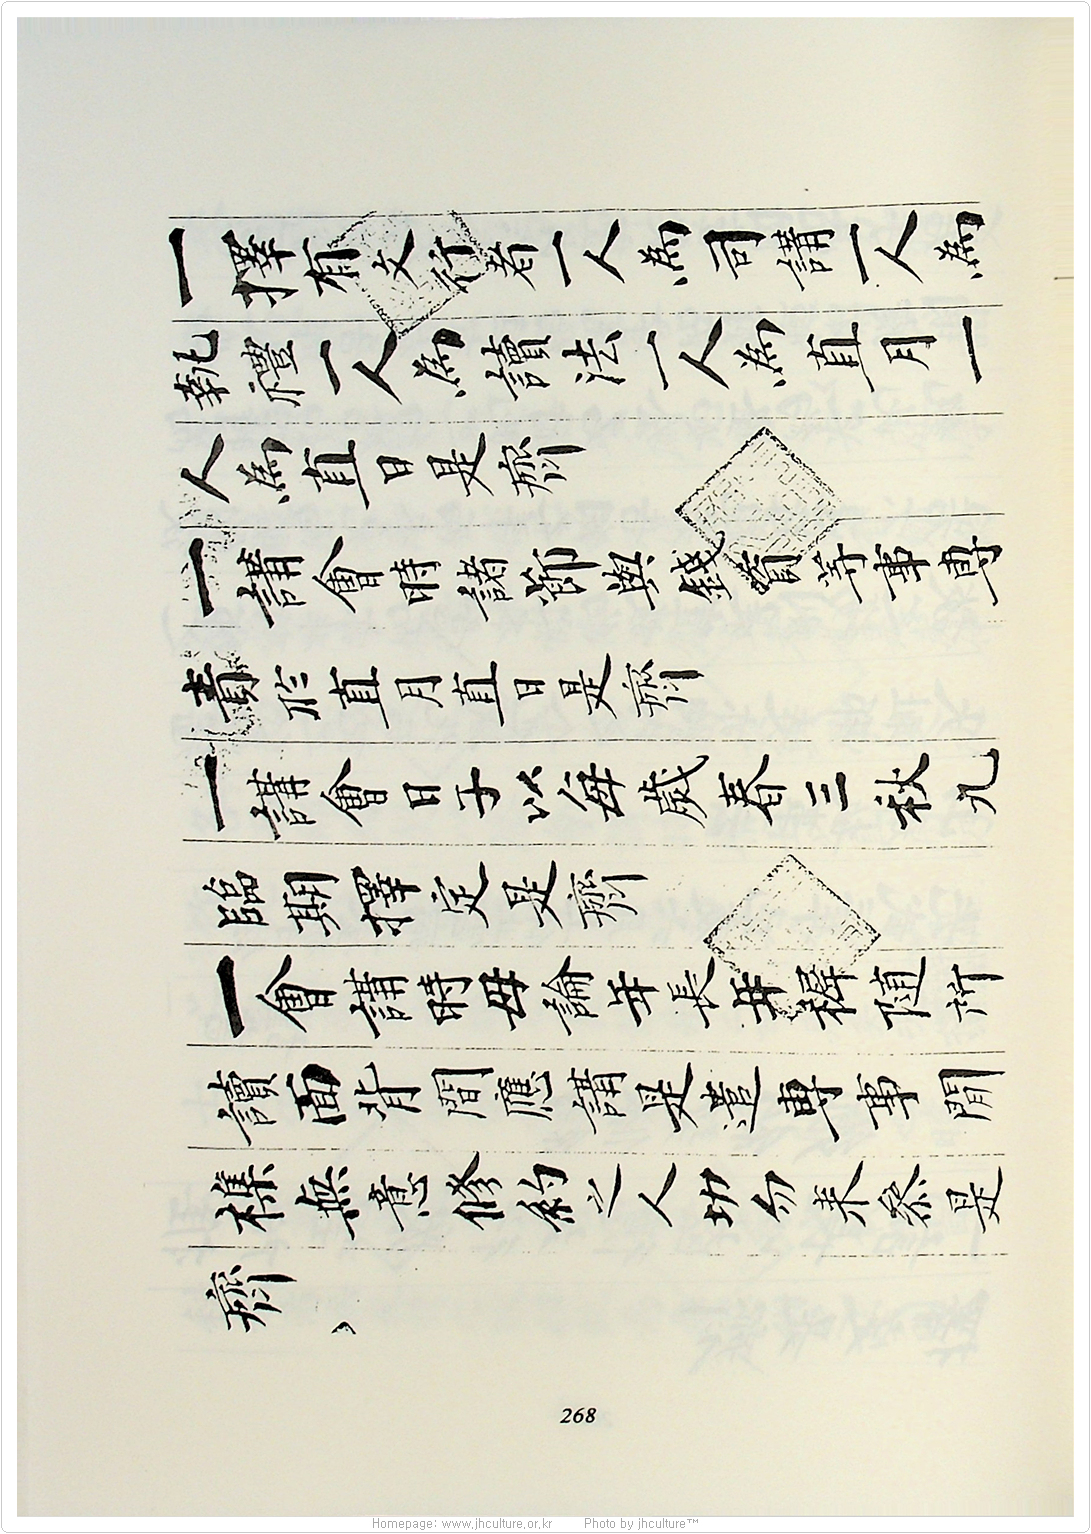 一擇有文行者一人為司講一人為
執禮一人為讀法一人為直月一
人為直日是齊
一講會時諸節與錢簿等事專
責於直月直日是齊
一講會日子以每歲春三秋九
臨期擇定是齊
一會講時毋論年長年穉随所
讀面背間應講是遣專事閒
雜無意修約之人切勿来參是
齊
268
Homepage: www.jhculture.or.kr Photo by jhculture™